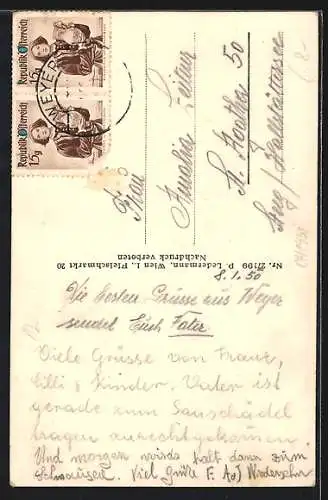 Republik Österreich
15g
Republik Österreich
15g
WEYER
Frau
Amalia
St. Agatha 50
Steeg / Hallstättersee
Nr. 27199 P. Ledermann, Wien I., Fleischmarkt 20
Nachdruck verboten
8.1.50
Die besten Grüsse aus Weyer
sendet Euch Vater
Viele Grüsse von Franz,
Cilli & Kinder. Vater ist
gerade zum Sauschädel
tragen zurechtgekommen.
Und morgen wirds halt dann zum
schmausen. Viel Grüße F. Auf Wiedersehn